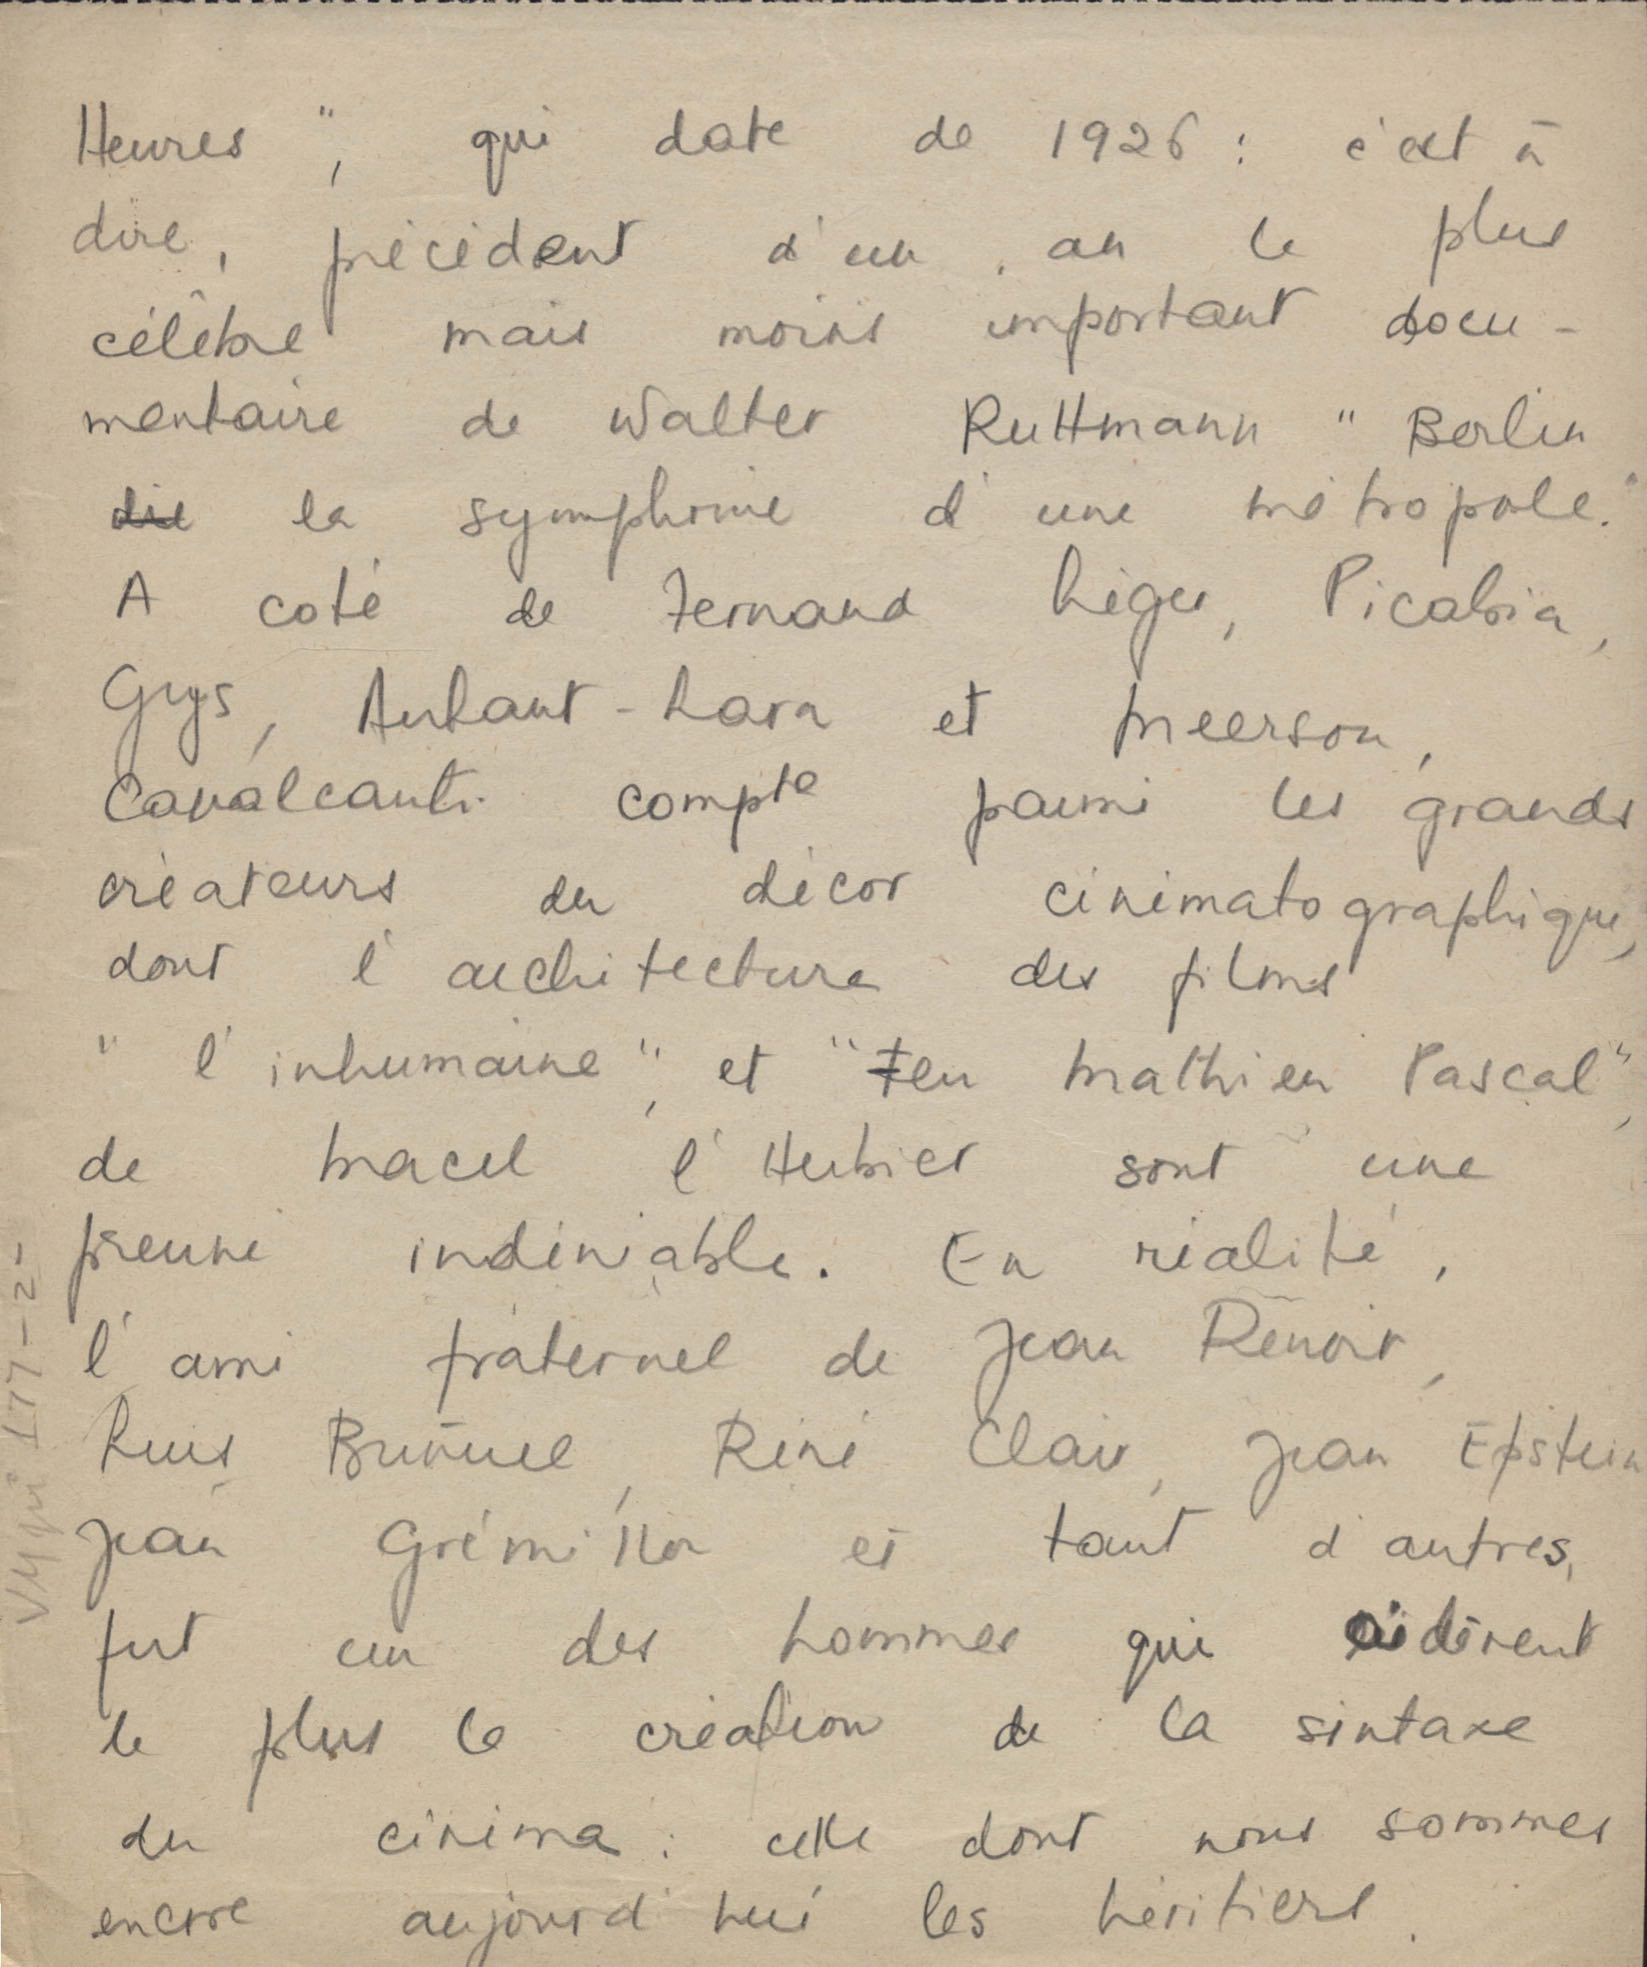 Heures", qui date de 1926 : c'est à
dire, précédent d'un an le plus
célèbre mais moins important docu-
mentaire de Walter Ruttmann "Berlin
die la symphonie d'une métropole."
A coté de Fernand Léger, Picabia,
Grys, Autant-Lara et Meerson,
Cavalcanti compte parmi les grands
créateurs du décor cinématographique,
dont l'architecture des films
"l'inhumaine", et "Feu Mathieu Pascal",
de Macel l'Herbier sont une
preuve indéniable. En réalité,
l'ami fraternel de Jean Renoir,
Luis Buñuel, René Clair, Jean Epstein
Jean Grémillon et tant d'autres,
fut un des hommes qui aidèrent
le plus la création de la sintaxe
du cinéma : celle dont nous sommes
encore aujourd'hui les héritiers.
177-2-